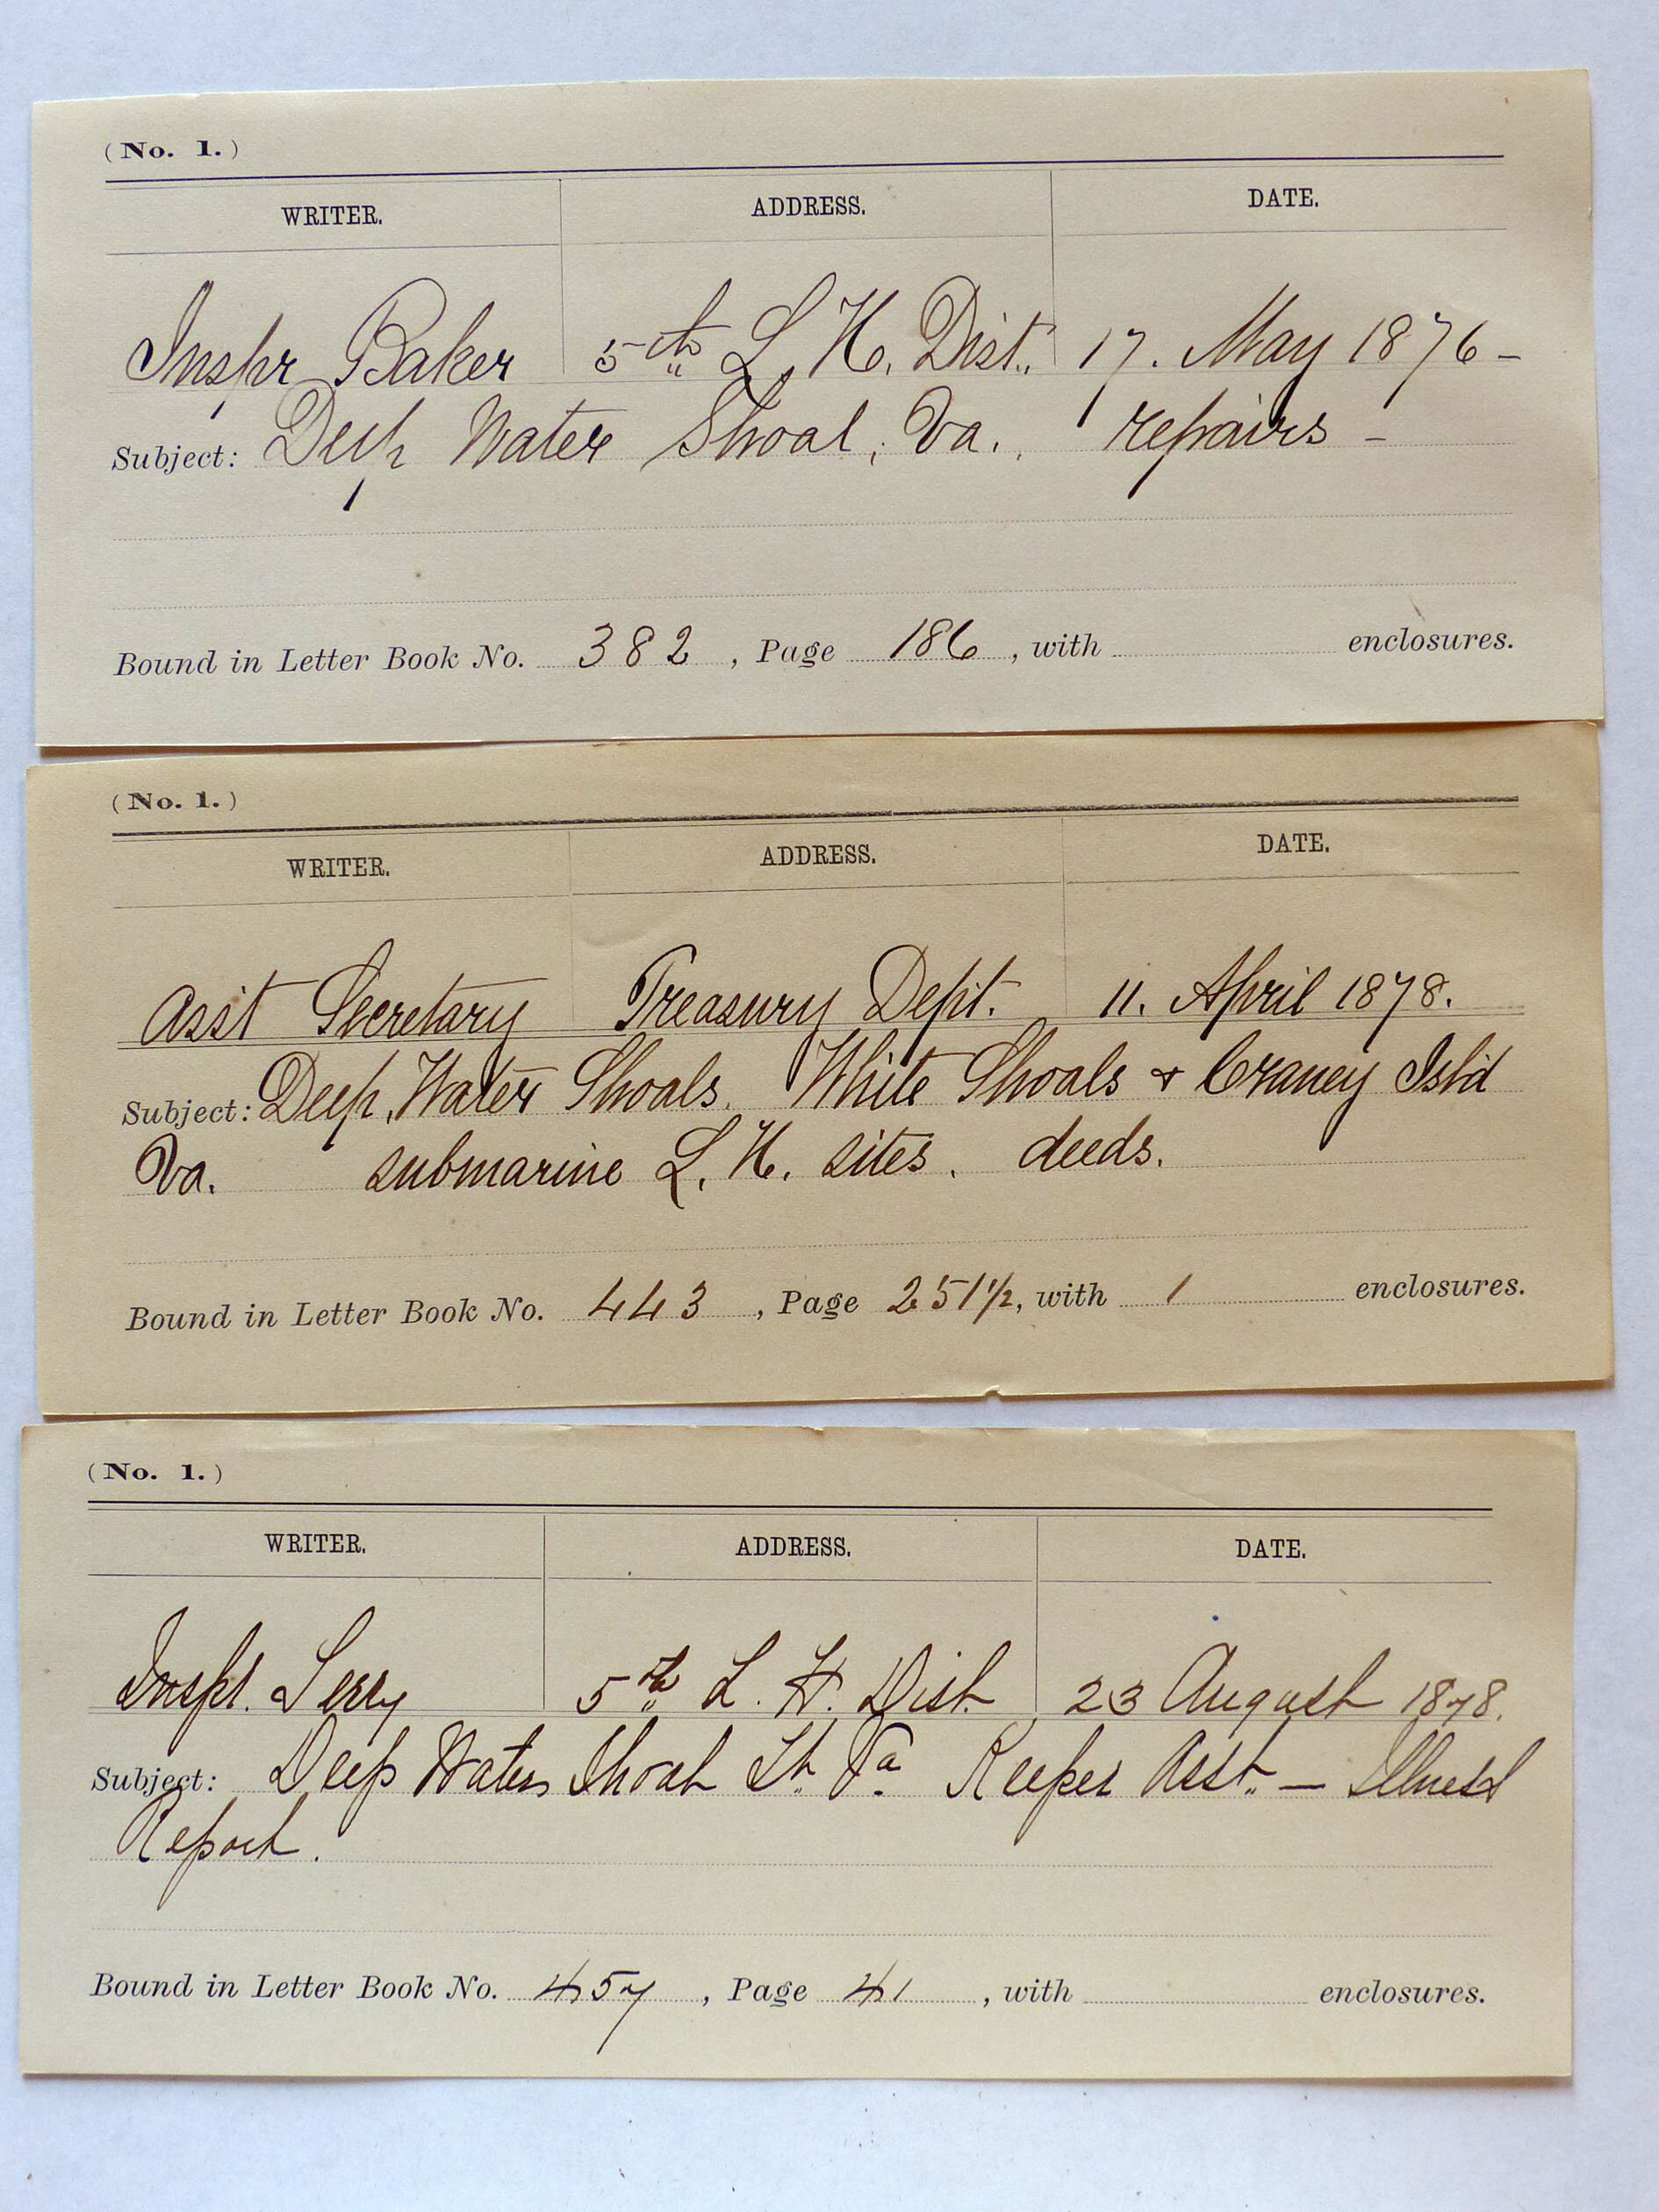 (No. 1.)
WRITER. ADDRESS. DATE.
Inspr Baker 5th L. H. Dist. 17. May 1876 -
Subject: Deep Water Shoal, Va. repairs -
Bound in Letter Book No. 382, Page 186, with enclosures.
(No. 1.)
WRITER. ADDRESS. DATE.
Asst Secretary Treasury Dept. 11. April 1878.
Subject: Deep Water Shoals. White Shoals & Craney Isl'd
Va. submarine L. H. sites. deeds.
Bound in Letter Book No. 443, Page 251½, with 1 enclosures.
(No. 1.)
WRITER. ADDRESS. DATE.
Inspr. 5th L. H. Dist. 23 August 1878.
Subject: Deep Water Shoal Lt. Va Keeper Asst. — Illness
Report.
Bound in Letter Book No. 457, Page 41, with enclosures.